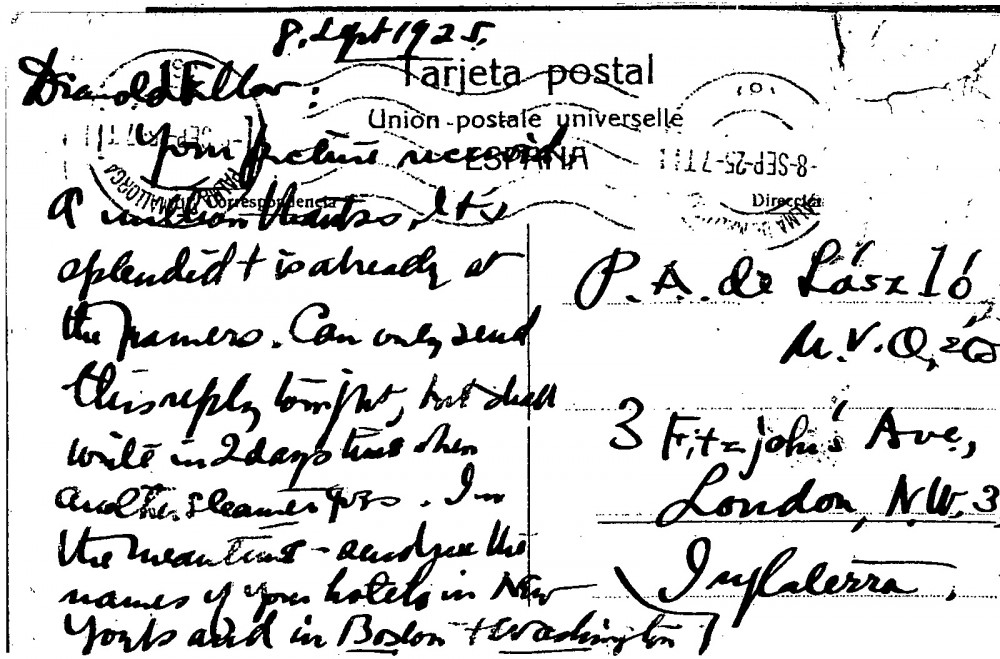 8. Sept 1925.
Dear old Fellow:
Your picture received
A million thanks. It's
splendid + is already at
the framers. Can only send
this reply tonight, but shall
write in 2 days time when
another steamer goes. In
the meantime - send me the
names of your hotels in New
York and in Boston + Washington
Tarjeta postal
Union postale universelle
ESPAÑA
Correspondencia
Dirección
8-SEP-25-7T
PALMA MALLORCA
P. A. de László
M.V.O.,
3 Fitzjohn's Ave.,
London, N.W.3
Inglaterra.